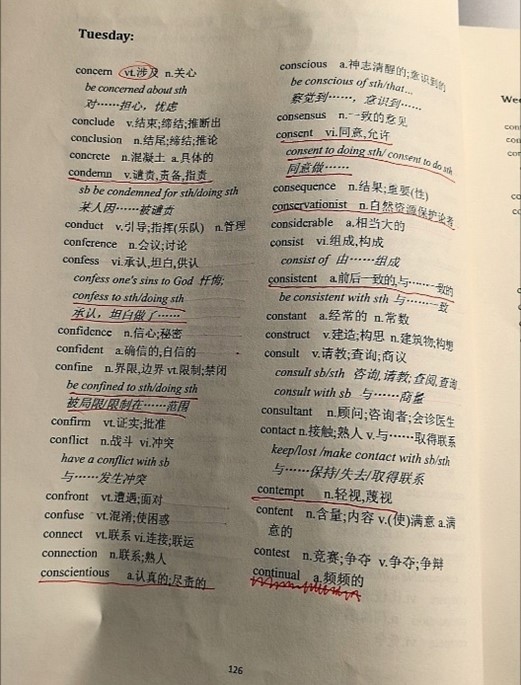 Tuesday:
concern vt.涉及 n.关心
be concerned about sth
对……担心，忧虑
conclude v.结束;缔结;推断出
conclusion n.结尾;缔结;推论
concrete n.混凝土 a.具体的
condemn v.谴责,责备,指责
sb be condemned for sth/doing sth
某人因……被谴责
conduct v.引导;指挥(乐队) n.管理
conference n.会议;讨论
confess vi.承认,坦白,供认
confess one's sins to God 忏悔;
confess to sth/doing sth
承认，坦白做了……
confidence n.信心;秘密
confident a.确信的,自信的
confine n.界限,边界 vt.限制;禁闭
be confined to sth/doing sth
被局限/限制在……范围
confirm vt.证实;批准
conflict n.战斗 vi.冲突
have a conflict with sb
与……发生冲突
confront vt.遭遇;面对
confuse vt.混淆;使困惑
connect vt.联系 vi.连接;联运
connection n.联系;熟人
conscientious a.认真的;尽责的
conscious a.神志清醒的;意识到的
be conscious of sth/that...
察觉到……，意识到……
consensus n.一致的意见
consent vi.同意,允许
consent to doing sth/ consent to do sth
同意做……
consequence n.结果;重要(性)
conservationist n.自然资源保护论者
considerable a.相当大的
consist vi.组成,构成
consist of 由……组成
consistent a.前后一致的,与……一致的
be consistent with sth 与……一致
constant a.经常的 n.常数
construct v.建造;构思 n.建筑物;构想
consult v.请教;查询;商议
consult sb/sth 咨询,请教;查阅,查询
consult with sb 与……商量
consultant n.顾问;咨询者;会诊医生
contact n.接触;熟人 v.与……取得联系
keep/lost /make contact with sb/sth
与……保持/失去/取得联系
contempt n.轻视,蔑视
content n.含量;内容 v.(使)满意 a.满
意的
contest n.竞赛;争夺 v.争夺;争辩
continual a.频频的
126